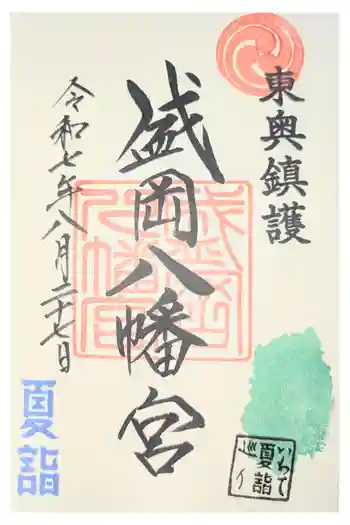 東奥鎮護
盛岡八幡宮
盛岡八幡宮
令和七年八月二十七日
夏詣
いわて
夏詣
巡り